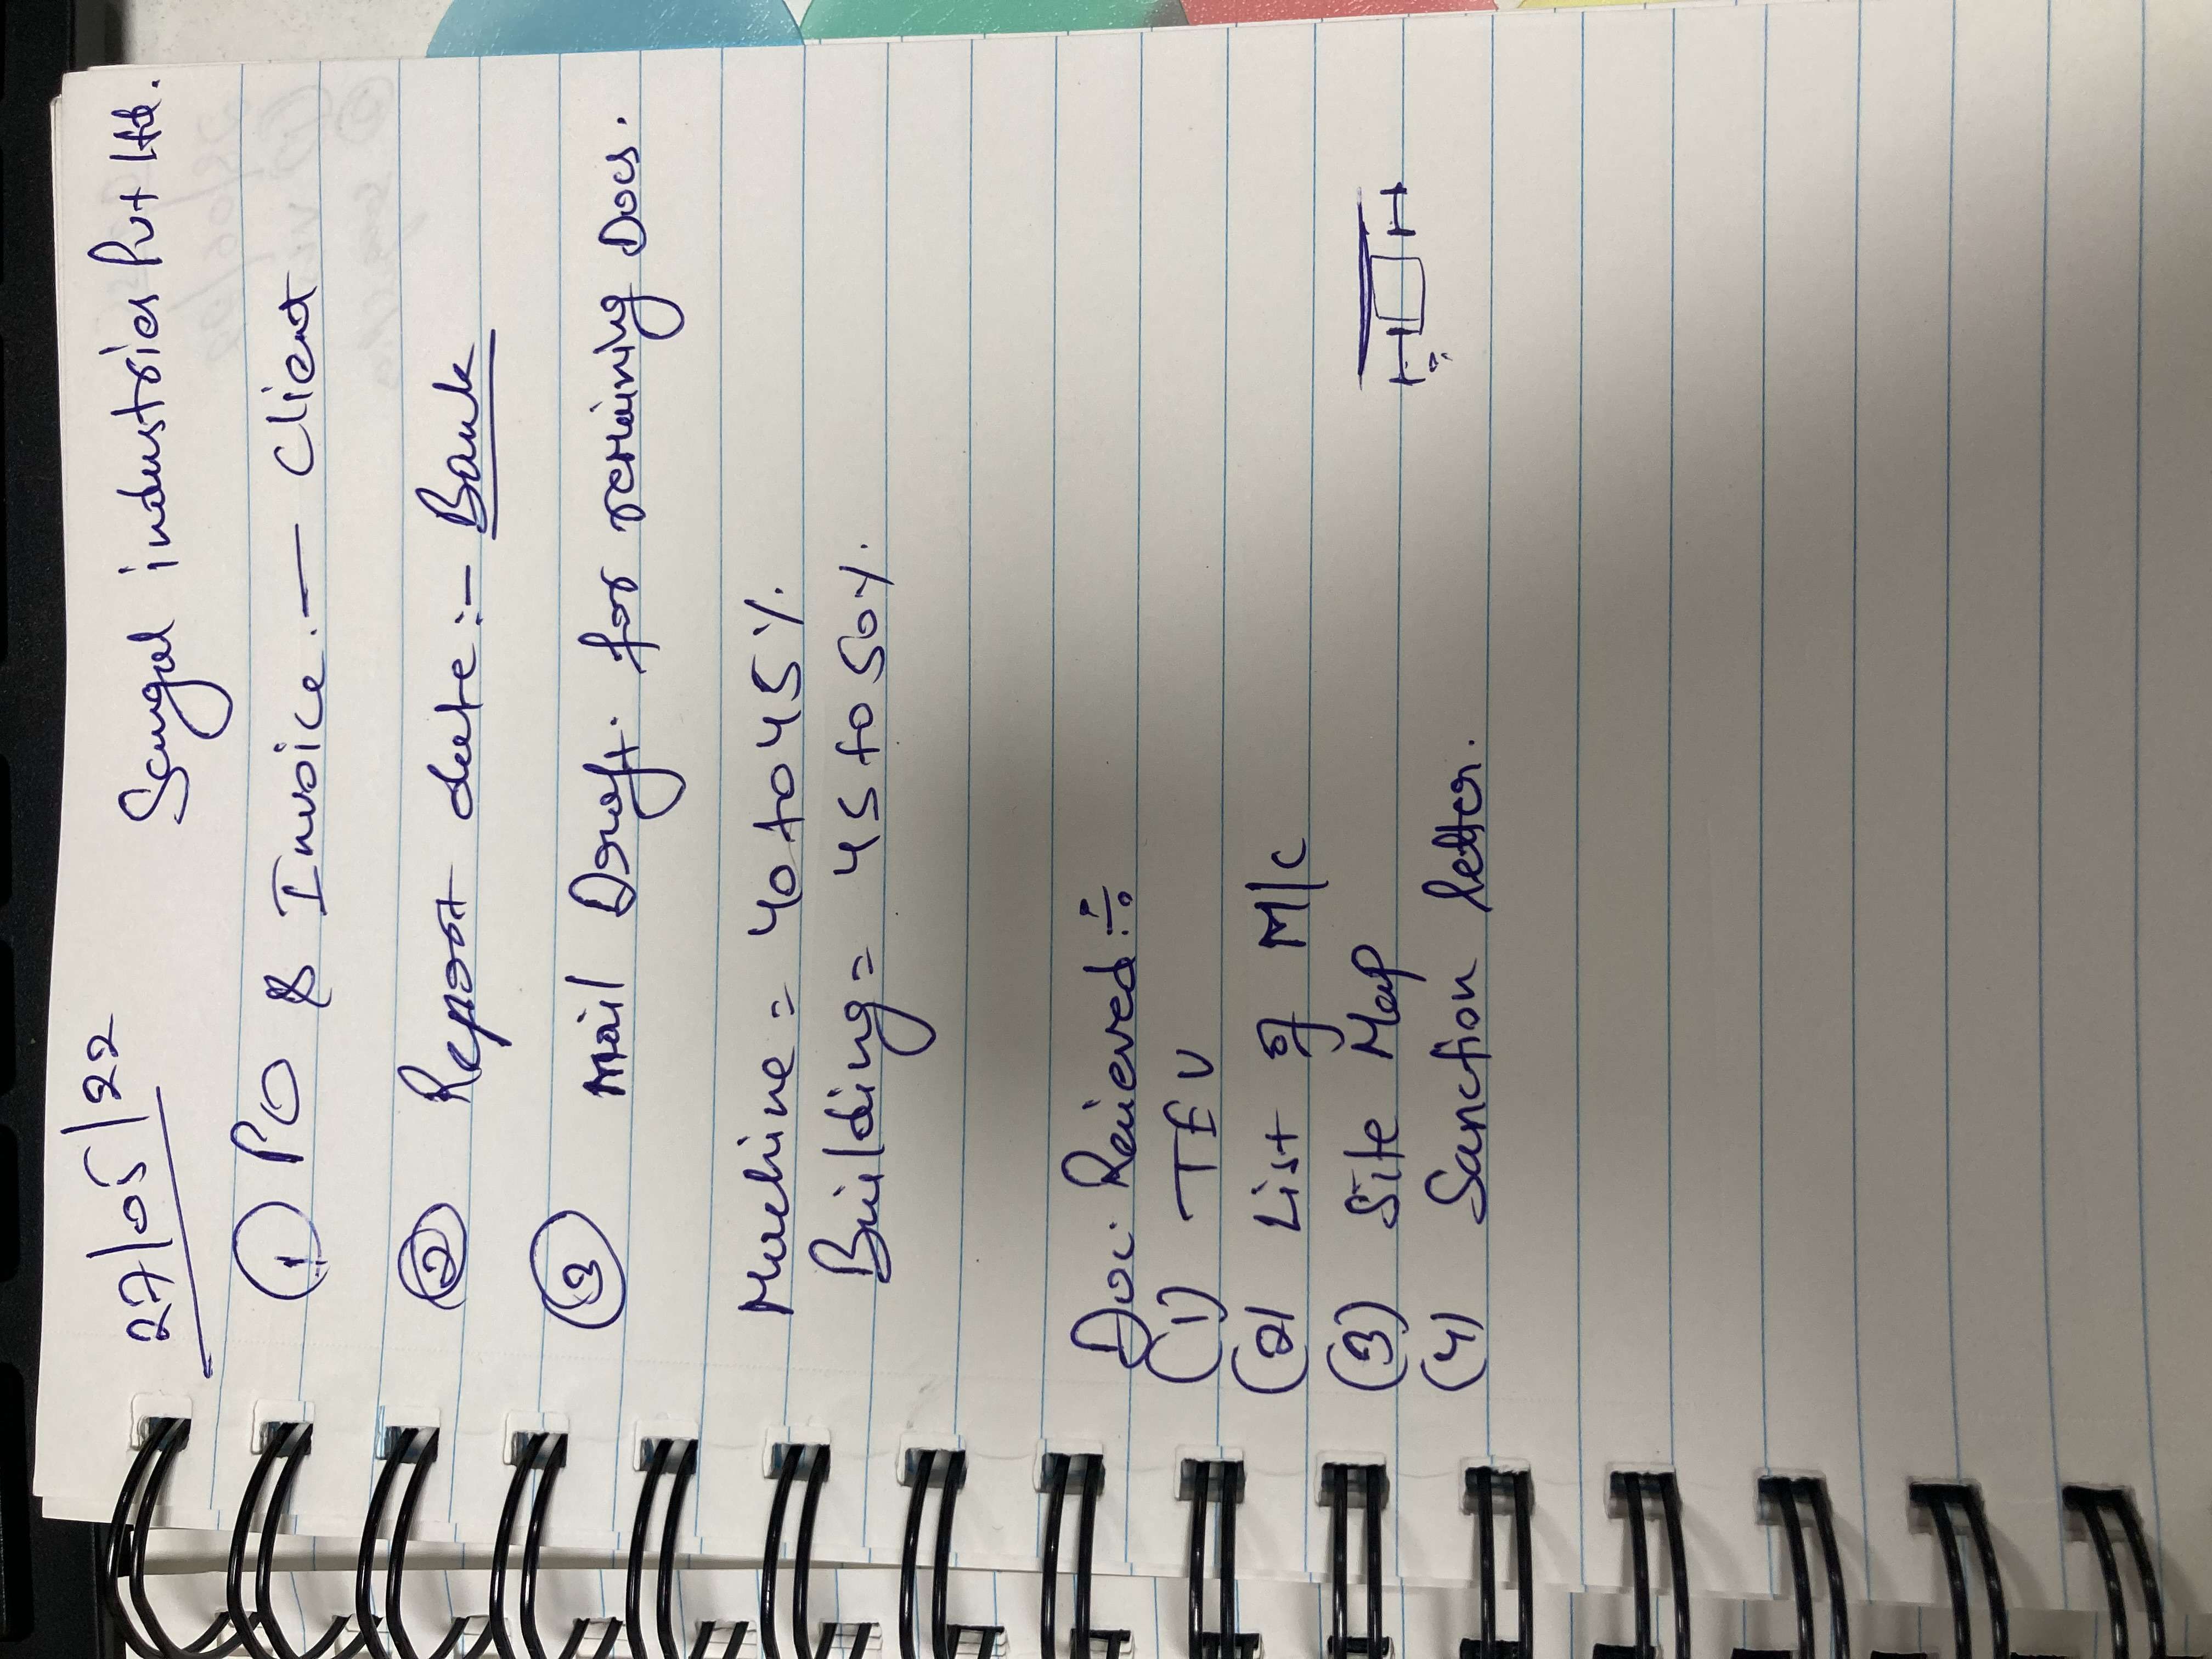 27/05/22 Sangal industries Pvt Ltd.
① PO & Invoice. — Client
② Report date:- Bank
③ Mail Draft. for remining Docs.
Machine = 40 to 45%.
Building = 45 to 50%.
Doc. Reieved:-
(1) TEV
(2) List of M/c
(3) Site Map
(4) Sanction letter.